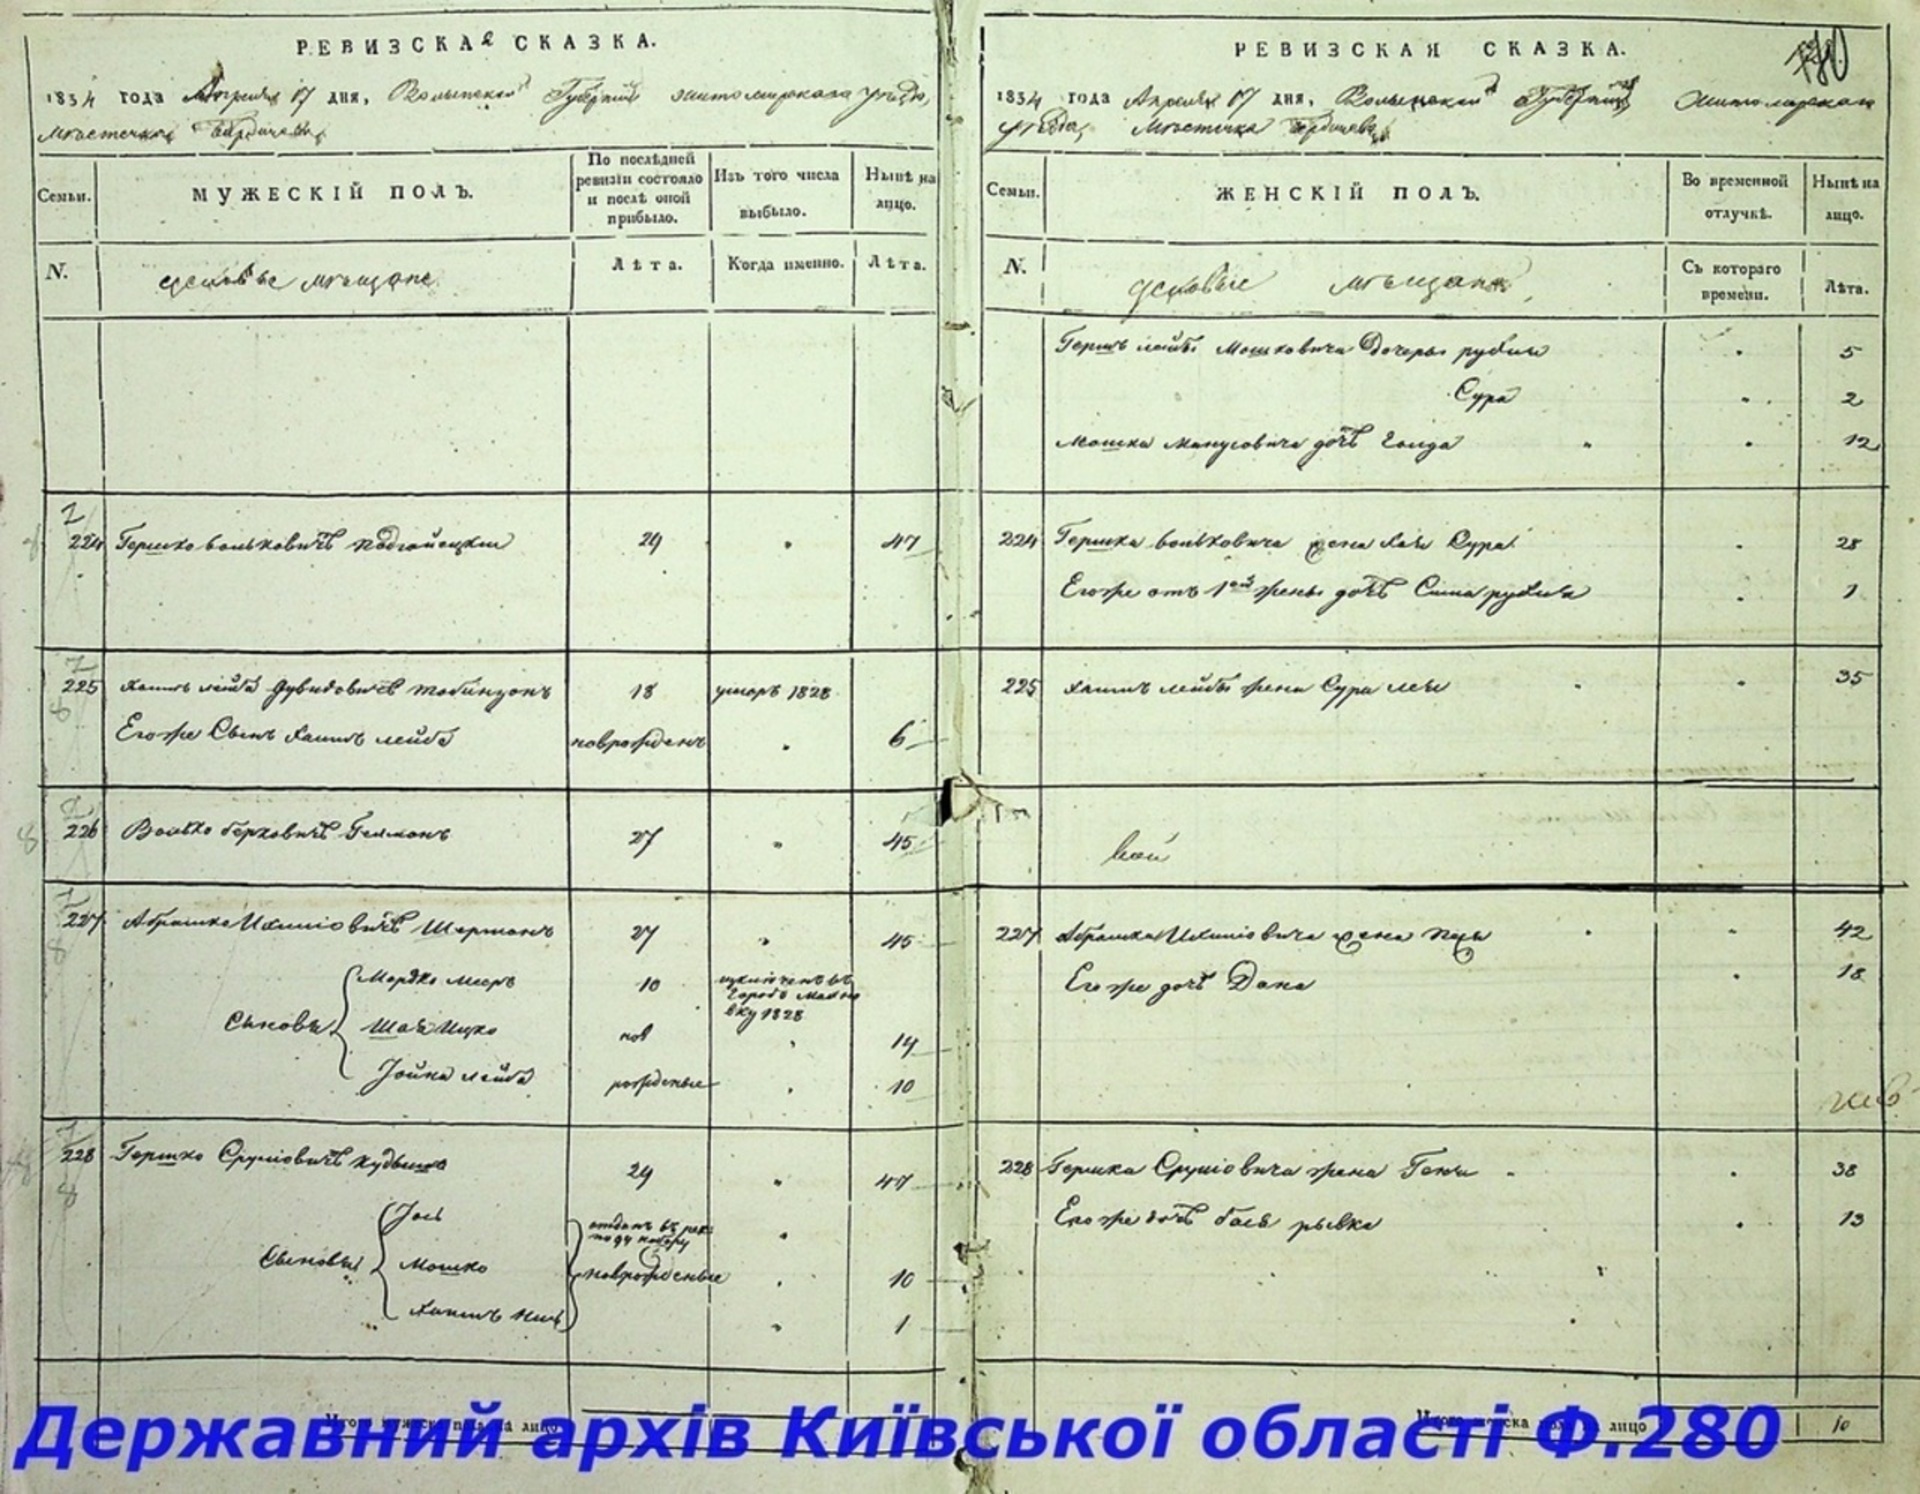 РЕВИЗСКАЯ СКАЗКА.
1834 года Апреля 17 дня, Волынской Губернии Житомирскаго уезда,
Местечка Бердичева
Семьи.
МУЖЕСКІЙ ПОЛЪ.
По послѣдней ревизіи состояло и послѣ оной прибыло.
Изъ того числа выбыло.
Нынѣ на лицо.
N.
мѣщане
Лѣта.
Когда именно.
Лѣта.
224 Гершко Вольковичъ Подгаецкій 29 " 47
225 Хаимъ Лейба Дувидовичъ 18 умеръ 1828
Егоже Сынъ Хаимъ Лейба новорожденъ " 6
226 Волько Берковичъ Гелманъ 27 " 45
227 Абрашко Шерманъ 27 " 45
Мордко Мееръ 10
Городъ
1828
Сыновья Шая Ицко нов " 14
Іойна Лейба рожденые " 10
228 Гершко Сруліовичъ 29 " 47
Іось отданъ въ
Сыновья Мошко новорожденые " 10
Хаимъ " 1
Итого мужеска пола на лицо
РЕВИЗСКАЯ СКАЗКА.
180
1834 года Апреля 17 дня, Волынской Губерніи Житомирскаго
уезда, Местечка Бердичева
Семьи.
ЖЕНСКІЙ ПОЛЪ.
Во временной отлучкѣ.
Нынѣ на лицо.
N.
мѣщане
Съ котораго времени.
Лѣта.
Гершъ Лейбы Мошковича Дочеры Рухля " 5
Сура " 2
Мошка Манусовича дочь Голда " 12
224 Гершка Вольковича жена Хая Сура " 28
Егоже отъ 1ой жены дочь Сима Рухля " 1
225 Хаимъ Лейбы жена Сура Лея " 35
227 Абрашка жена " 42
Егоже дочь Дана " 18
228 Гершка Сруліовича жена Геня " 38
Егоже дочь Бася Рывка " 13
Итого женска пола на лицо 10
Державний архів Київської області Ф.280